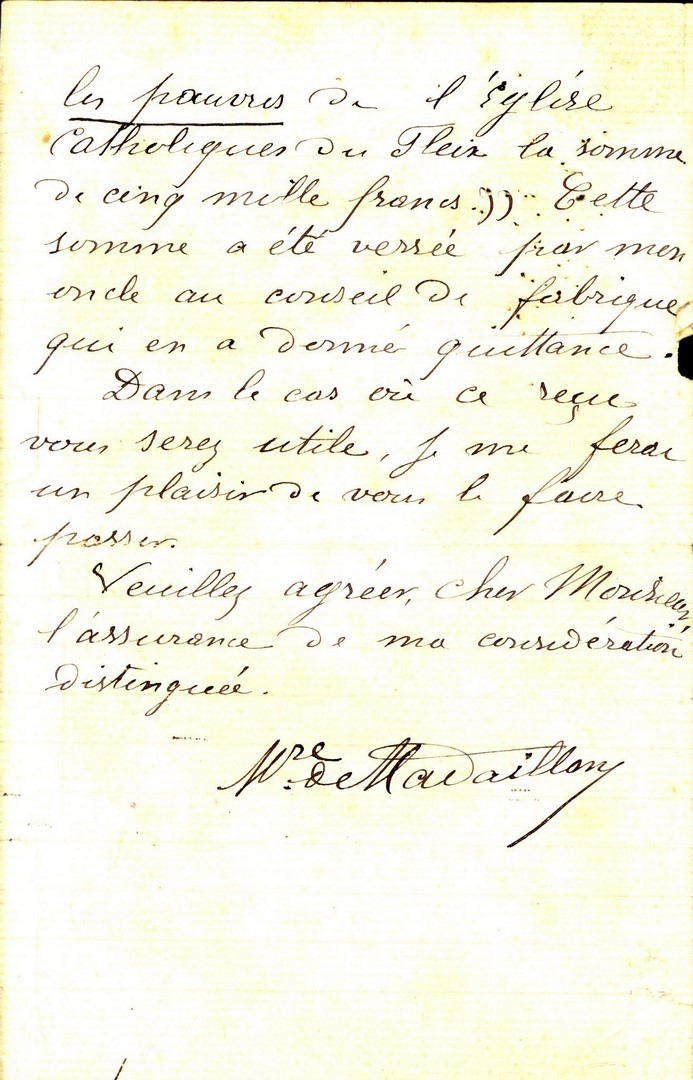 les pauvres de l'Église
Catholiques du Fleix la somme
de cinq mille francs.)) Cette
somme a été versée par mon
oncle au conseil de fabrique
qui en a donné quittance.
Dans le cas où ce reçu
vous serez utile, je me ferai
un plaisir de vous le faire
passer.
Veuillez agréer, cher Monsieur,
l'assurance de ma considération
distinguée.
de Madaillan